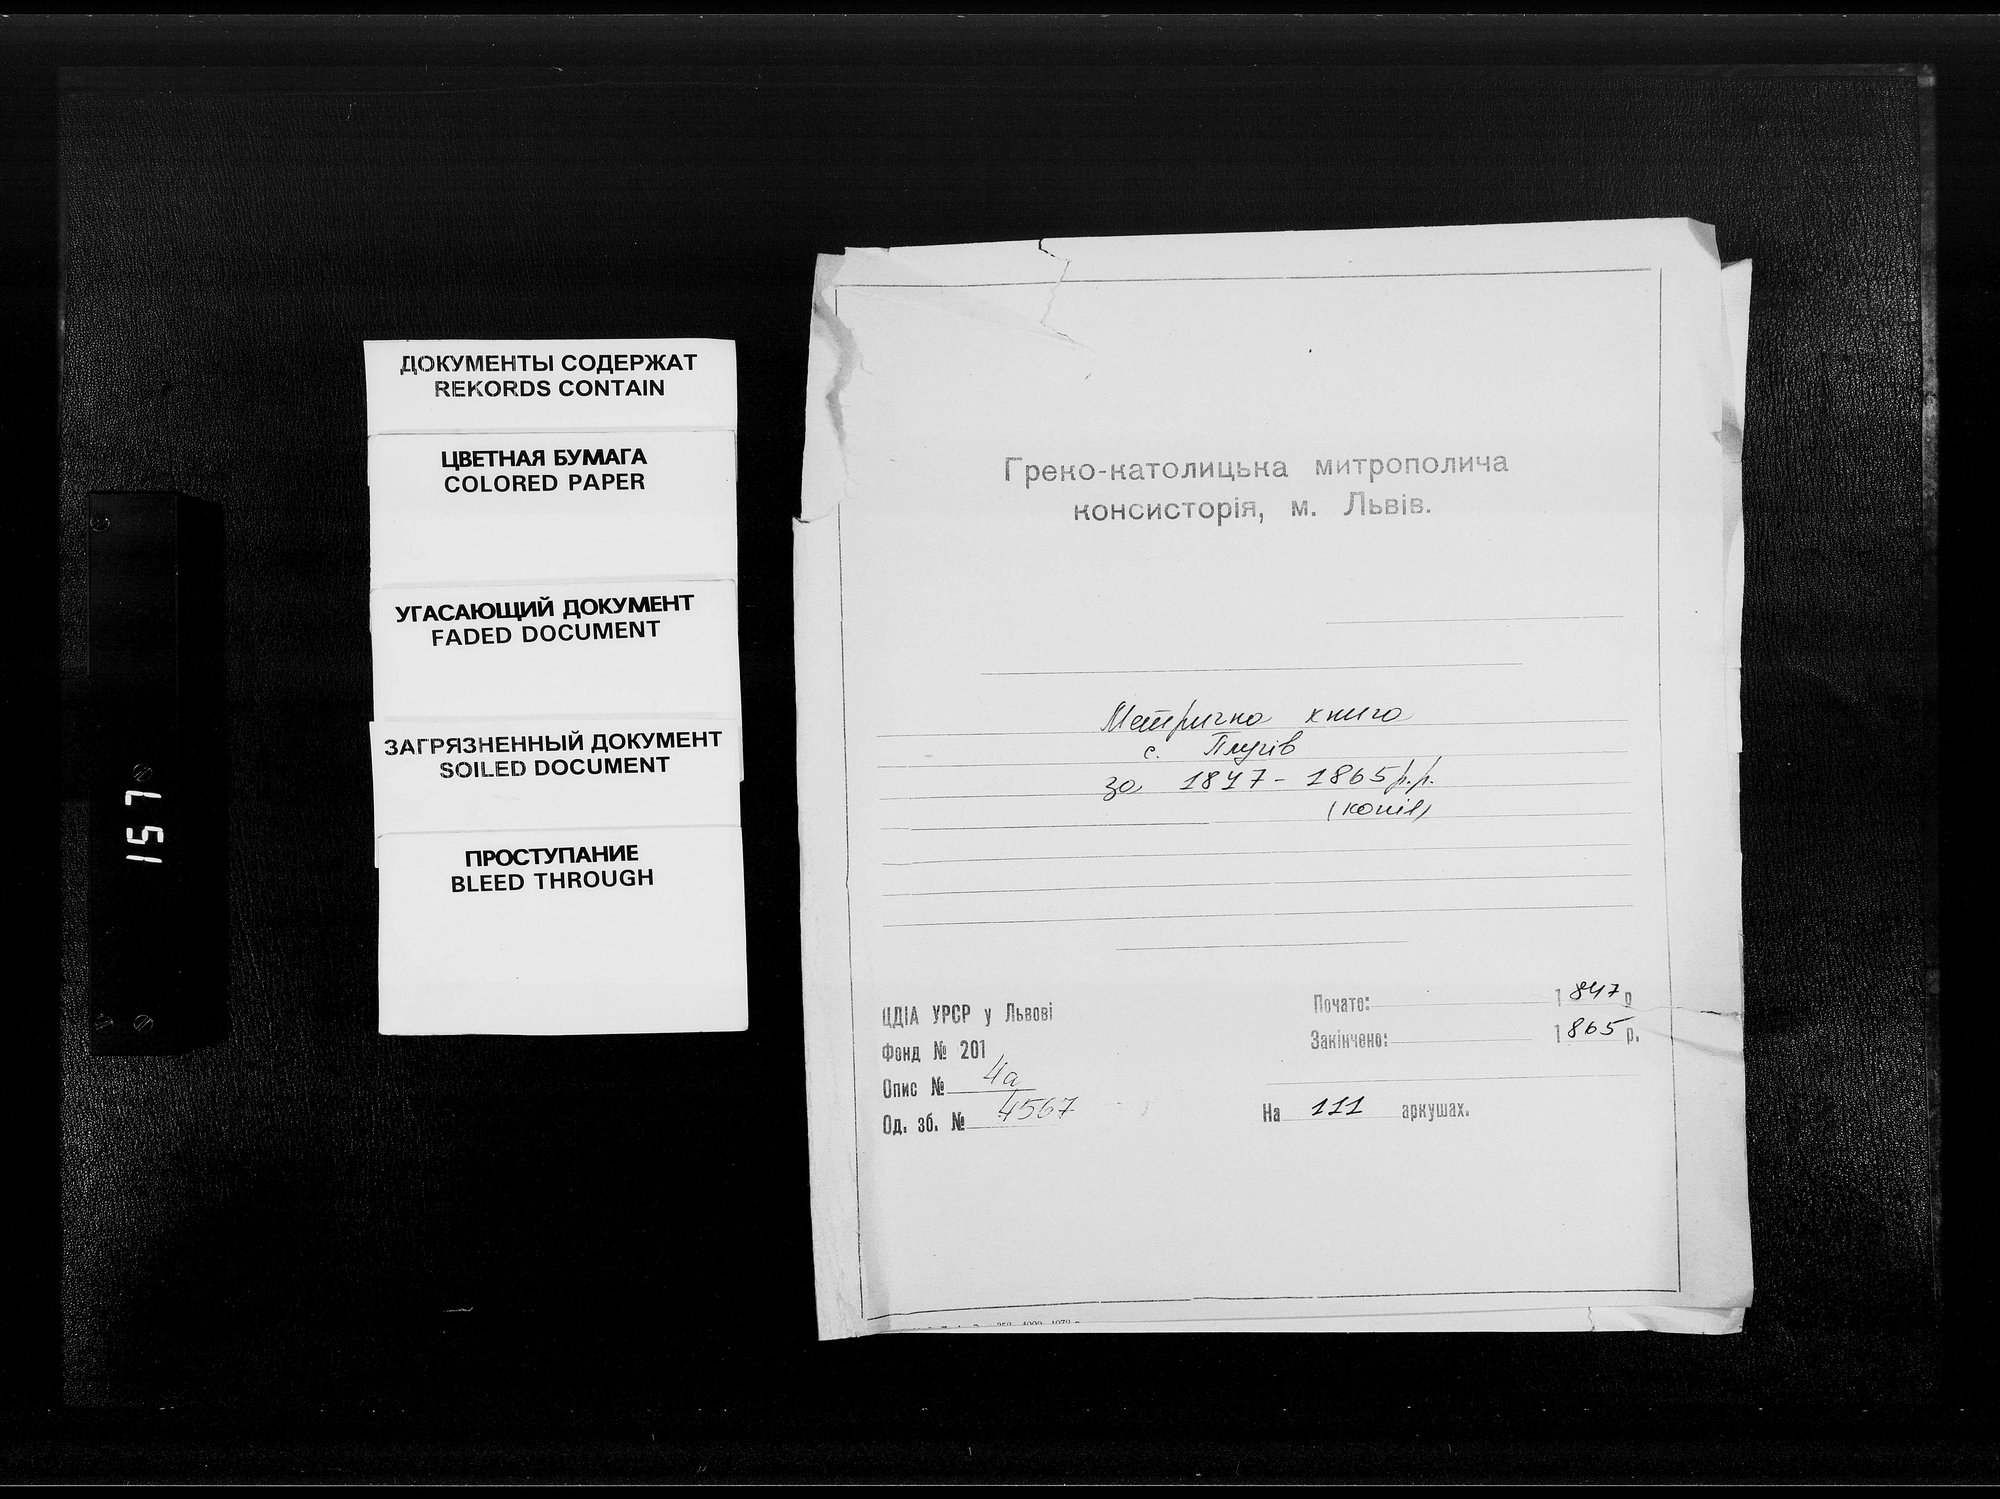 ДОКУМЕНТЫ СОДЕРЖАТ
REKORDS CONTAIN
ЦВЕТНАЯ БУМАГА
COLORED PAPER
УГАСАЮЩИЙ ДОКУМЕНТ
FADED DOCUMENT
ЗАГРЯЗНЕННЫЙ ДОКУМЕНТ
SOILED DOCUMENT
ПРОСТУПАНИЕ
BLEED THROUGH
157
Греко-католицька митрополича
консисторія, м. Львів.
Метрична книга
с. Плугів
за 1847-1865 р.р.
(копія)
ЦДІА УРСР у Львові
Фонд № 201
Опис № 4а
Од. зб. № 4567
Почато: 1847 р
Закінчено: 1865 р.
На 111 аркушах.